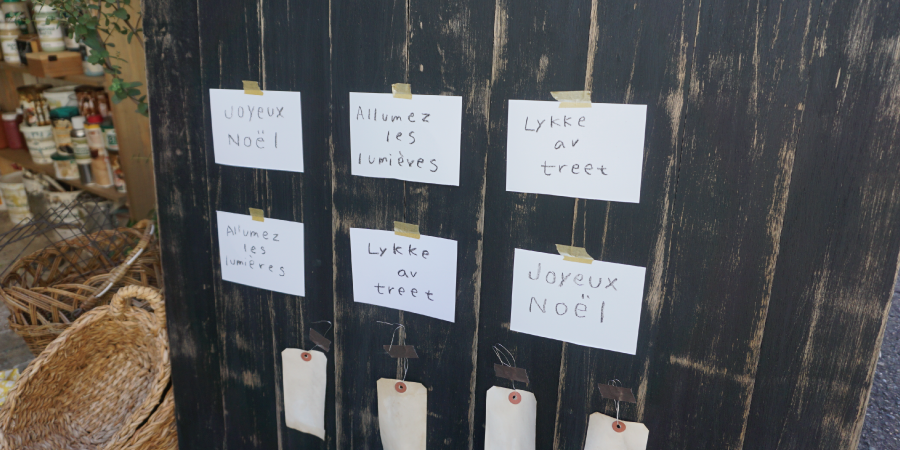 Joyeux
Noël
Allumez
les
lumières
Lykke
av
treet
Allumez
les
lumières
Lykke
av
treet
Joyeux
Noël